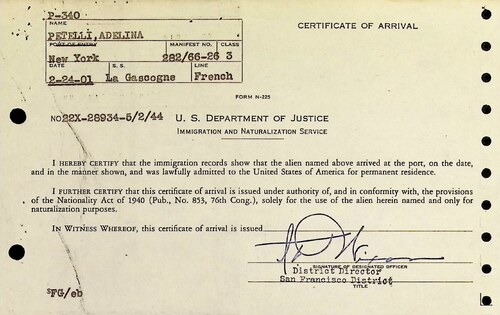 P-340
CERTIFICATE OF ARRIVAL
NAME
PETELLI, ADELINA
PORT OF ENTRY MANIFEST NO. CLASS
New York 282/66-26 3
DATE S. S. LINE
2-24-01 La Gascogne French
FORM N-225
NO 22X-28934-5/2/44 U. S. DEPARTMENT OF JUSTICE
IMMIGRATION AND NATURALIZATION SERVICE
I HEREBY CERTIFY that the immigration records show that the alien named above arrived at the port, on the date,
and in the manner shown, and was lawfully admitted to the United States of America for permanent residence.
I FURTHER CERTIFY that this certificate of arrival is issued under authority of, and in conformity with, the provisions
of the Nationality Act of 1940 (Pub., No. 853, 76th Cong.), solely for the use of the alien herein named and only for
naturalization purposes.
IN WITNESS WHEREOF, this certificate of arrival is issued
SIGNATURE OF DESIGNATED OFFICER
District Director
San Francisco District
TITLE
SFG/eb